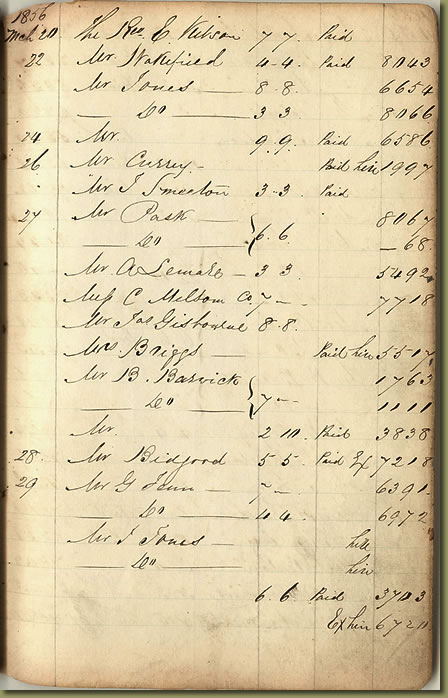 1856
Mch 20 The Rev. E. Kitson 7 7. Paid
22 Mr Wakefield 4.4. Paid 8043
Mr Jones — 8.8. 6654
— Do — 3 3 8066
24 Mr. 9.9. Paid 6586
26 Mr Currey — Paid hire 1997
Mr J Smeeton 3..3. Paid
27 Mr Pask — 8067
— Do — } 6.6. — 68.
Mr A Lemale — 3 3 5492
Mess C Milsom Co. 7 — 7718
Mr Jas Gisbourne 8.8.
Mrs Briggs — Paid hire 5517
Mr B. Barwick 1763
— Do — } 7 — 1111
Mr. 2 10. Paid 3838
28. Mr Bidgood 5 5. Paid Ex 7218
29 Mr G Fenn — 7 — 6391.
— Do — 4 4. 6972
Mr J Jones — hire
— Do — hire
6.6. Paid 3703
Ex hire 6720